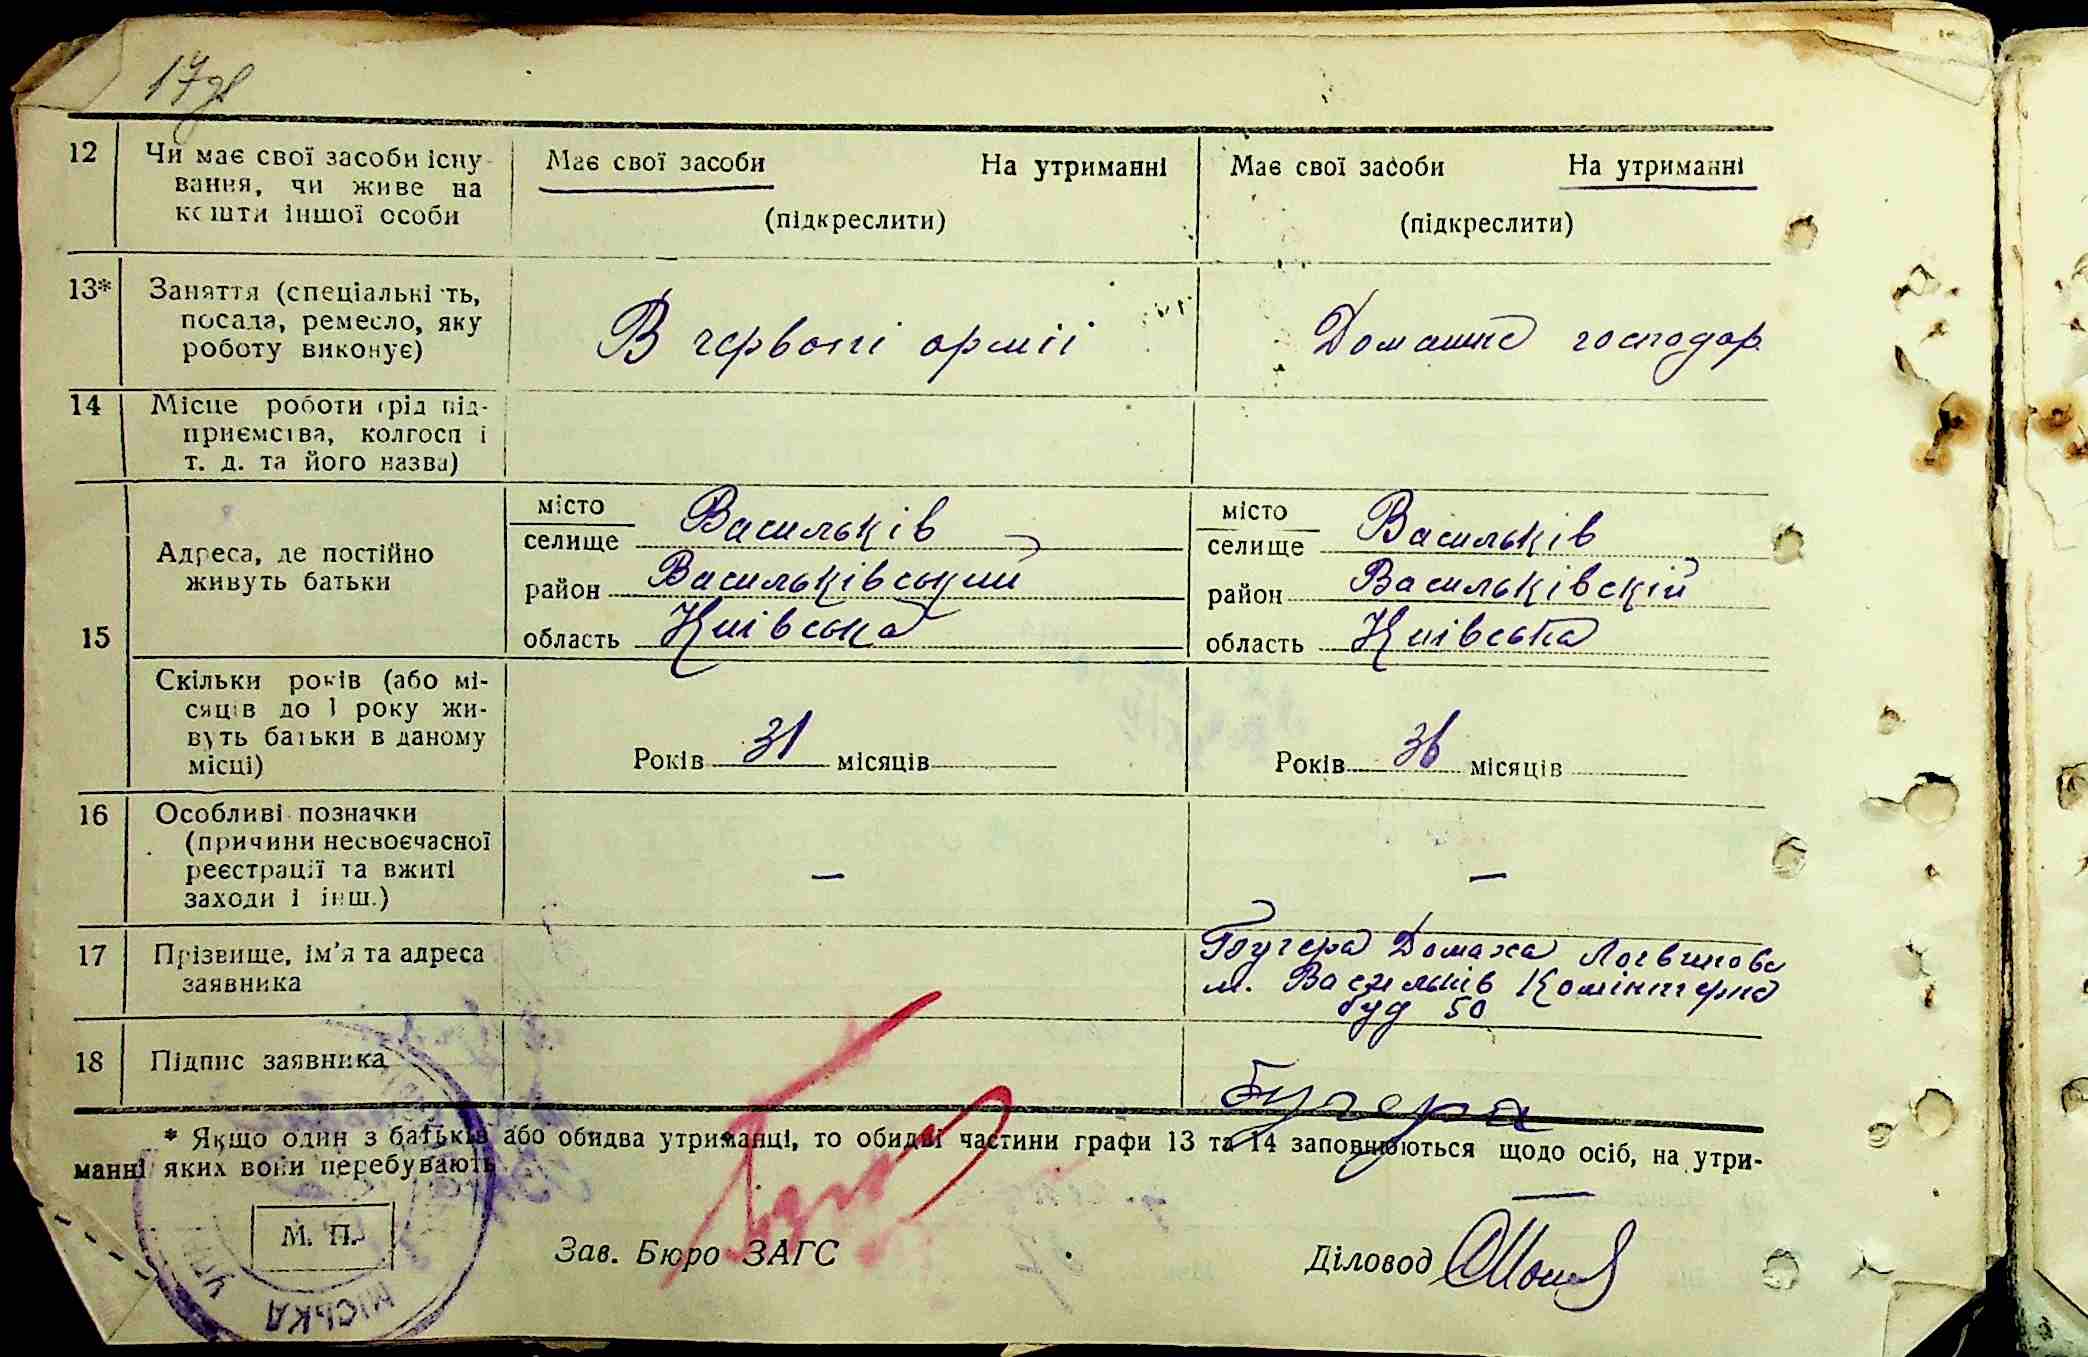 12 Чи має свої засоби існу-
вання, чи живе на
кошти іншої особи
Має свої засоби На утриманні
(підкреслити)
Має свої засоби На утриманні
(підкреслити)
13* Заняття (спеціальність,
посада, ремесло, яку
роботу виконує)
В червоні армії
Домашнє господар.
14 Місце роботи (рід під-
приємства, колгосп і
т. д. та його назва)
15
Адреса, де постійно
живуть батьки
місто
селище Васильків
район Васильківський
область Київська
місто
селище Васильків
район Васильківскій
область Київська
Скільки років (або мі-
сяців до 1 року жи-
вуть батьки в даному
місці)
Років 31 місяців
Років 36 місяців
16 Особливі позначки
(причини несвоєчасної
реєстрації та вжиті
заходи і інш.)
–
–
17 Прізвище, ім'я та адреса
заявника
Бугера Домаха Логвинова
м. Васильків Комінтерна
буд 50
18 Підпис заявника
Бугера
* Якщо один з батьків або обидва утриманці, то обидві частини графи 13 та 14 заповнюються щодо осіб, на утри-
манні яких вони перебувають
М. П.
Зав. Бюро ЗАГС
Діловод
МІСЬКА